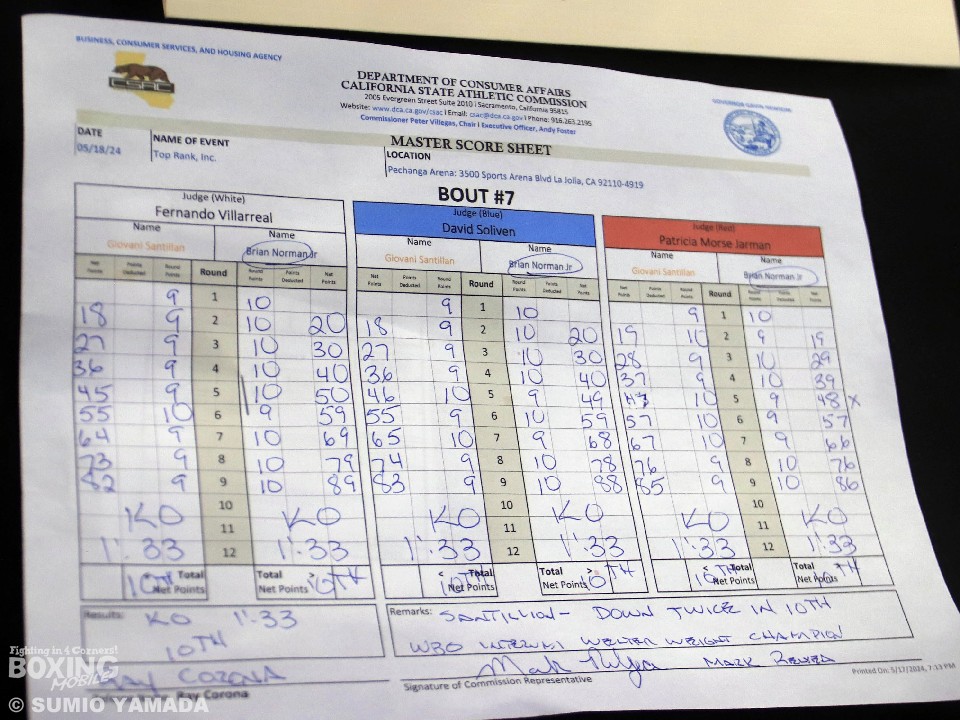 BUSINESS, CONSUMER SERVICES, AND HOUSING AGENCY
CSAC
DEPARTMENT OF CONSUMER AFFAIRS
CALIFORNIA STATE ATHLETIC COMMISSION
2005 Evergreen Street Suite 2010 | Sacramento, California 95815
Website: www.dca.ca.gov/csac | Email: csac@dca.ca.gov | Phone: 916.263.2195
Commissioner Peter Villegas, Chair | Executive Officer, Andy Foster
MASTER SCORE SHEET
DATE NAME OF EVENT LOCATION
05/18/24 Top Rank, Inc. Pechanga Arena: 3500 Sports Arena Blvd La Jolla, CA 92110-4919
BOUT #7
Judge (White) Judge (Blue) Judge (Red)
Fernando Villarreal David Soliven Patricia Morse Jarman
Name Name Name Name Name Name
Giovani Santillan Brian Norman Jr Giovani Santillan Brian Norman Jr Giovani Santillan Brian Norman Jr
Net Points Points Deducted Round Points Round Round Points Points Deducted Net Points Net Points Points Deducted Round Points Round Round Points Points Deducted Net Points Net Points Points Deducted Round Points Round Round Points Points Deducted Net Points
9 1 10 9 1 10 9 1 10
18 9 2 10 20 18 9 2 10 20 19 10 2 9 19
27 9 3 10 30 27 9 3 10 30 28 9 3 10 29
36 9 4 10 40 36 9 4 10 40 37 9 4 10 39
45 9 5 10 50 46 10 5 9 49 47 10 5 9 48 X
55 10 6 9 59 55 9 6 10 59 57 10 6 9 57
64 9 7 10 69 65 10 7 9 68 67 10 7 9 66
73 9 8 10 79 74 9 8 10 78 76 9 8 10 76
82 9 9 10 89 83 9 9 10 88 85 9 9 10 86
10 10 10
KO 11 KO KO 11 KO KO 11 KO
1:33 12 1:33 1:33 12 1:33 1:33 12 1:33
10TH Total Net Points Total Net Points 10TH 10TH Total Net Points Total Net Points 10TH 10TH Total Net Points Total Net Points 10TH
Results: KO 1:33
10TH
RAY CORONA
Ray Corona
Remarks: SANTILLION - DOWN TWICE IN 10TH
WBO INTERIM WELTER WEIGHT CHAMPION
Signature of Commission Representative
Printed On: 5/17/2024, 7:13 PM
Fighting in 4 Corners!
BOXING
MOBILE
© SUMIO YAMADA